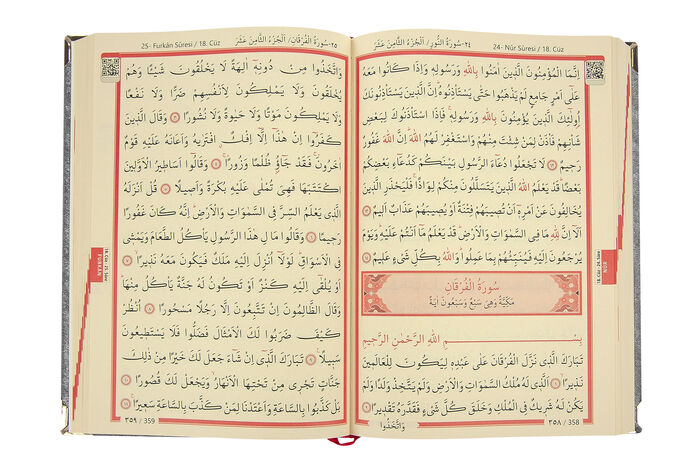 24- Nûr Sûresi / 18. Cüz
٢٤- سُورَةُ النُّورِ / اَلْجُزْءُ الثَّامِنَ عَشَرَ
اِنَّمَا الْمُؤْمِنُونَ الَّذ۪ينَ اٰمَنُوا بِاللّٰهِ وَرَسُولِه۪ وَاِذَا كَانُوا مَعَهُ
عَلٰٓى اَمْرٍ جَامِعٍ لَمْ يَذْهَبُوا حَتّٰى يَسْتَأْذِنُوهُۜ اِنَّ الَّذ۪ينَ يَسْتَأْذِنُونَكَ
اُو۬لٰٓئِكَ الَّذ۪ينَ يُؤْمِنُونَ بِاللّٰهِ وَرَسُولِه۪ۚ فَاِذَا اسْتَأْذَنُوكَ لِبَعْضِ
شَأْنِهِمْ فَأْذَنْ لِمَنْ شِئْتَ مِنْهُمْ وَاسْتَغْفِرْ لَهُمُ اللّٰهَۜ اِنَّ اللّٰهَ غَفُورٌ
رَح۪يمٌ ﴿٦٢﴾ لَا تَجْعَلُوا دُعَٓاءَ الرَّسُولِ بَيْنَكُمْ كَدُعَٓاءِ بَعْضِكُمْ
بَعْضًاۜ قَدْ يَعْلَمُ اللّٰهُ الَّذ۪ينَ يَتَسَلَّلُونَ مِنْكُمْ لِوَاذًاۚ فَلْيَحْذَرِ الَّذ۪ينَ
يُخَالِفُونَ عَنْ اَمْرِه۪ٓ اَنْ تُص۪يبَهُمْ فِتْنَةٌ اَوْ يُص۪يبَهُمْ عَذَابٌ اَل۪يمٌ ﴿٦٣﴾
اَلَٓا اِنَّ لِلّٰهِ مَا فِي السَّمٰوَاتِ وَالْاَرْضِۜ قَدْ يَعْلَمُ مَٓا اَنْتُمْ عَلَيْهِۜ وَيَوْمَ
يُرْجَعُونَ اِلَيْهِ فَيُنَبِّئُهُمْ بِمَا عَمِلُواۜ وَاللّٰهُ بِكُلِّ شَيْءٍ عَل۪يمٌ ﴿٦٤﴾
سُورَةُ الْفُرْقَانِ
مَكِّيَّةٌ وَهِيَ سَبْعٌ وَسَبْعُونَ اٰيَةً
بِسْــــمِ اللّٰهِ الرَّحْمٰنِ الرَّح۪يمِ
تَبَارَكَ الَّذ۪ي نَزَّلَ الْفُرْقَانَ عَلٰى عَبْدِه۪ لِيَكُونَ لِلْعَالَم۪ينَ
نَذ۪يرًاۙ ﴿١﴾ اَلَّذ۪ي لَهُ مُلْكُ السَّمٰوَاتِ وَالْاَرْضِ وَلَمْ يَتَّخِذْ وَلَدًا وَلَمْ
يَكُنْ لَهُ شَر۪يكٌ فِي الْمُلْكِ وَخَلَقَ كُلَّ شَيْءٍ فَقَدَّرَهُ تَقْد۪يرًا ﴿٢﴾
وَاتَّخَذُوا
٣٥٨ / 358
18. Cüz - 24. Sûre
NÛR
25- Furkân Sûresi / 18. Cüz
٢٥- سُورَةُ الْفُرْقَانِ / اَلْجُزْءُ الثَّامِنَ عَشَرَ
وَاتَّخَذُوا مِنْ دُونِه۪ٓ اٰلِهَةً لَا يَخْلُقُونَ شَيْـًٔا وَهُمْ
يُخْلَقُونَ وَلَا يَمْلِكُونَ لِاَنْفُسِهِمْ ضَرًّا وَلَا نَفْعًا
وَلَا يَمْلِكُونَ مَوْتًا وَلَا حَيٰوةً وَلَا نُشُورًا ﴿٣﴾ وَقَالَ الَّذ۪ينَ
كَفَرُٓوا اِنْ هٰذَٓا اِلَّٓا اِفْكٌۨ افْتَرٰيهُ وَاَعَانَهُ عَلَيْهِ قَوْمٌ
اٰخَرُونَۚ فَقَدْ جَٓاؤُ۫ ظُلْمًا وَزُورًاۚ ﴿٤﴾ وَقَالُٓوا اَسَاط۪يرُ الْاَوَّل۪ينَ
اكْتَتَبَهَا فَهِيَ تُمْلٰى عَلَيْهِ بُكْرَةً وَاَص۪يلًا ﴿٥﴾ قُلْ اَنْزَلَهُ
الَّذ۪ي يَعْلَمُ السِّرَّ فِي السَّمٰوَاتِ وَالْاَرْضِۜ اِنَّهُ كَانَ غَفُورًا
رَح۪يمًا ﴿٦﴾ وَقَالُوا مَالِ هٰذَا الرَّسُولِ يَأْكُلُ الطَّعَامَ وَيَمْش۪ي
فِي الْاَسْوَاقِۜ لَوْلَٓا اُنْزِلَ اِلَيْهِ مَلَكٌ فَيَكُونَ مَعَهُ نَذ۪يرًاۙ ﴿٧﴾
اَوْ يُلْقٰٓى اِلَيْهِ كَنْزٌ اَوْ تَكُونُ لَهُ جَنَّةٌ يَأْكُلُ مِنْهَاۜ
وَقَالَ الظَّالِمُونَ اِنْ تَتَّبِعُونَ اِلَّا رَجُلًا مَسْحُورًا ﴿٨﴾ اُنْظُرْ
كَيْفَ ضَرَبُوا لَكَ الْاَمْثَالَ فَضَلُّوا فَلَا يَسْتَط۪يعُونَ
سَب۪يلًا۟ ﴿٩﴾ تَبَارَكَ الَّذ۪ٓي اِنْ شَٓاءَ جَعَلَ لَكَ خَيْرًا مِنْ ذٰلِكَ
جَنَّاتٍ تَجْر۪ي مِنْ تَحْتِهَا الْاَنْهَارُۙ وَيَجْعَلْ لَكَ قُصُورًا ﴿١٠﴾
بَلْ كَذَّبُوا بِالسَّاعَةِ وَاَعْتَدْنَا لِمَنْ كَذَّبَ بِالسَّاعَةِ سَع۪يرًاۚ ﴿١١﴾
٣٥٩ / 359
18. Cüz - 25. Sûre
FURKÂN